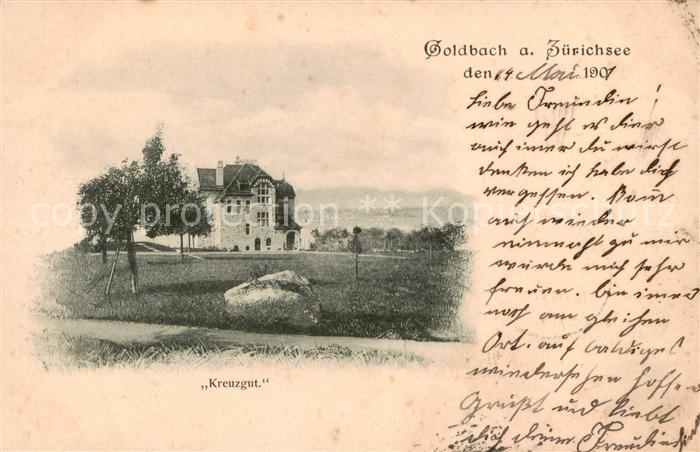 Goldbach a. Zürichsee
den 14 Mai 1901
Liebe Freundin!
wie geht es dier
auch imer du wirst
denken ich habe dich
vergessen. Kom
auch wieder
einmahl zu mir
würde mich sehr
freuen. bin imer
noch am gleichen
Ort. auf baldiges
wiedersehen hoffend
Grüßt und liebt
dich deine Freundin
„Kreuzgut."
copyright ** Kopierschutz